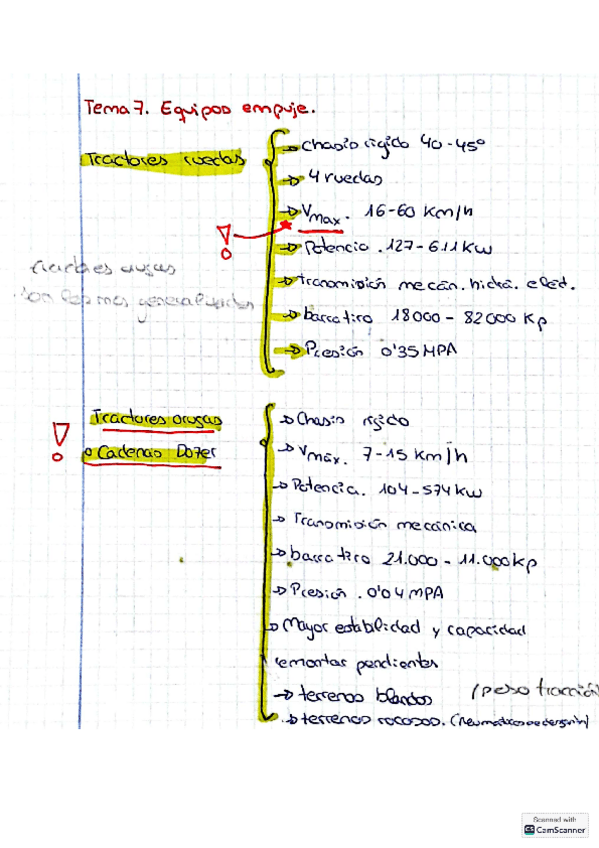 Tema 7. Equipos empuje.
Tractores ruedas
→ chasis rigido 40-45º
→ 4 ruedas
→ Vmax. 16-60 Km/h
→ Potencia. 127-611 Kw
→ transmisión mecán. hidrá. eléct.
→ barra tiro 18000 - 82000 Kp
→ Presión 0'35 MPA
tractores orugas
son los mas generalizados
Tractores orugas
o Cadenas Dozer
→ Chasis rigido
→ Vmáx. 7-15 Km/h
→ Potencia. 104-574 Kw
→ Transmisión mecánica
→ barra tiro 21.000 - 11.000 kp
→ Presión. 0'04 MPA
→ Mayor estabilidad y capacidad
remontar pendientes
→ terrenos blandos (peso tracción
→ terrenos rocosos. (Neumáticos
Scanned with
CS CamScanner